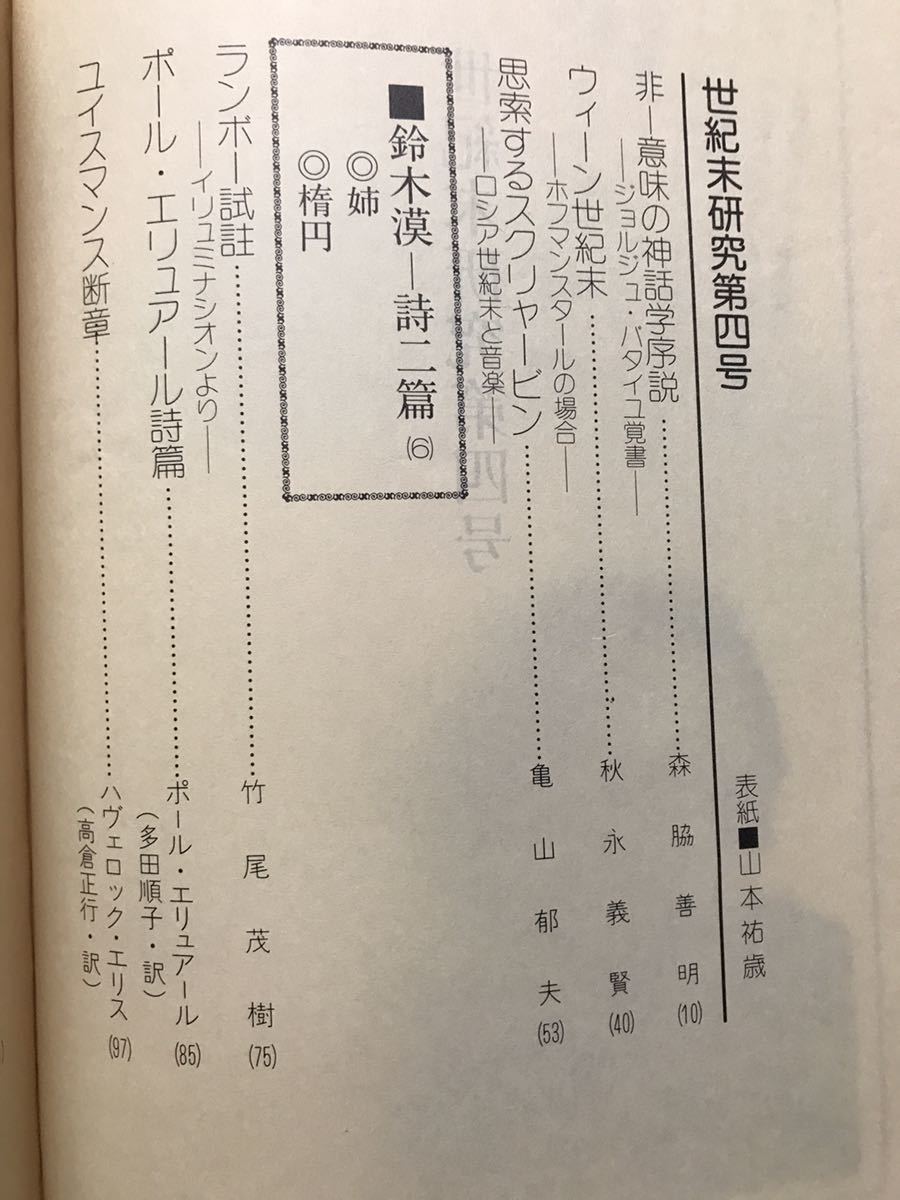 世紀末研究第四号
表紙■山本祐歳
非―意味の神話学序説……森脇善明(10)
――ジョルジュ・バタイユ覚書――
ウィーン世紀末……秋永義賢(40)
――ホフマンスタールの場合――
思索するスクリャービン……亀山郁夫(53)
――ロシア世紀末と音楽――
■鈴木漠―詩二篇(6)
◎姉
◎楕円
ランボー試註……竹尾茂樹(75)
――イリュミナシオンより――
ポール・エリュアール詩篇……ポール・エリュアール(85)
(多田順子・訳)
ユイスマンス断章……ハヴェロック・エリス(97)
(高倉正行・訳)